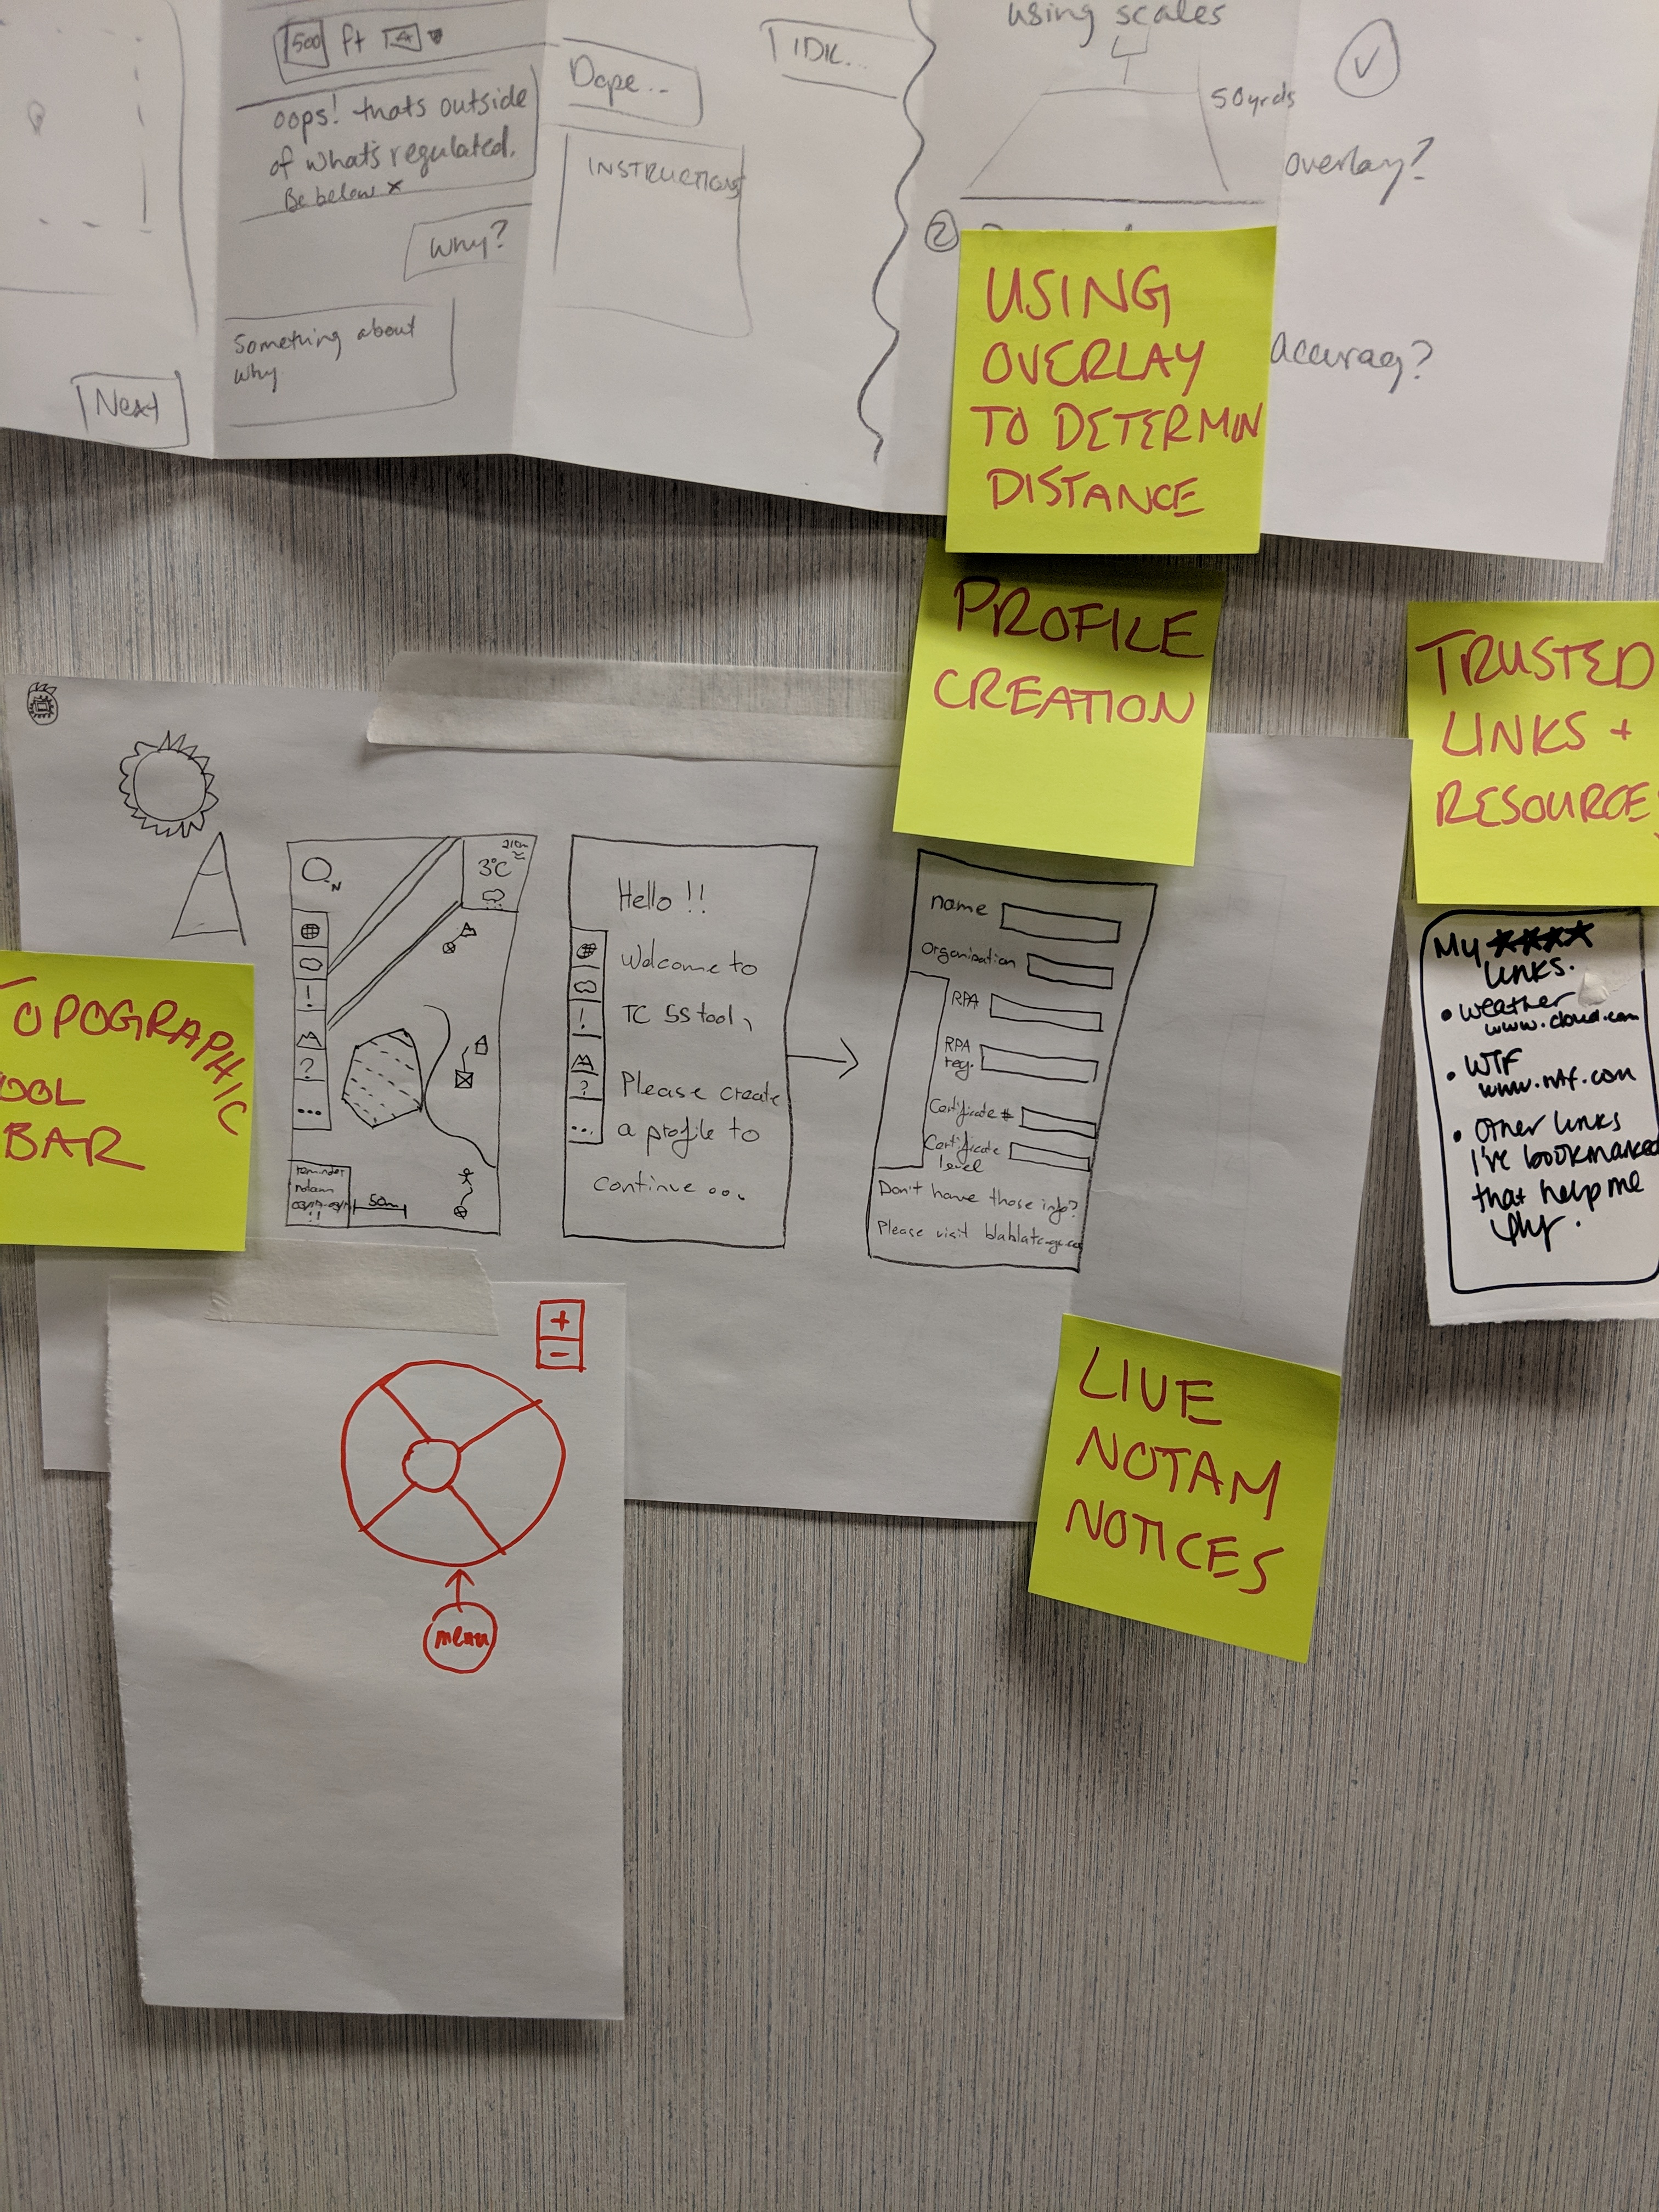 500 ft
oops! thats outside
of what's regulated.
Be below x
Why?
Something about
why
Next
Dope...
INSTRUCTIONS
IDK...
using scales
50yrds
overlay?
2
accuracy?
USING
OVERLAY
TO DETERMIN
DISTANCE
PROFILE
CREATION
TRUSTED
LINKS +
RESOURCES
TOPOGRAPHIC
OOL
BAR
N
210m
3°C
!
?
...
reminder
notam
50m
Hello !!
Welcome to
TC SS tool,
Please create
a profile to
continue ...
!
?
...
name
Organisation
RPA
RPA
reg.
Certificate #
Certificate
level
Don't have those info?
Please visit
My
links.
• weather
www.cloud.com
• WTF
www.wtf.com
• Other links
I've bookmarked
that help me
fly.
LIVE
NOTAM
NOTICES
+
-
menu